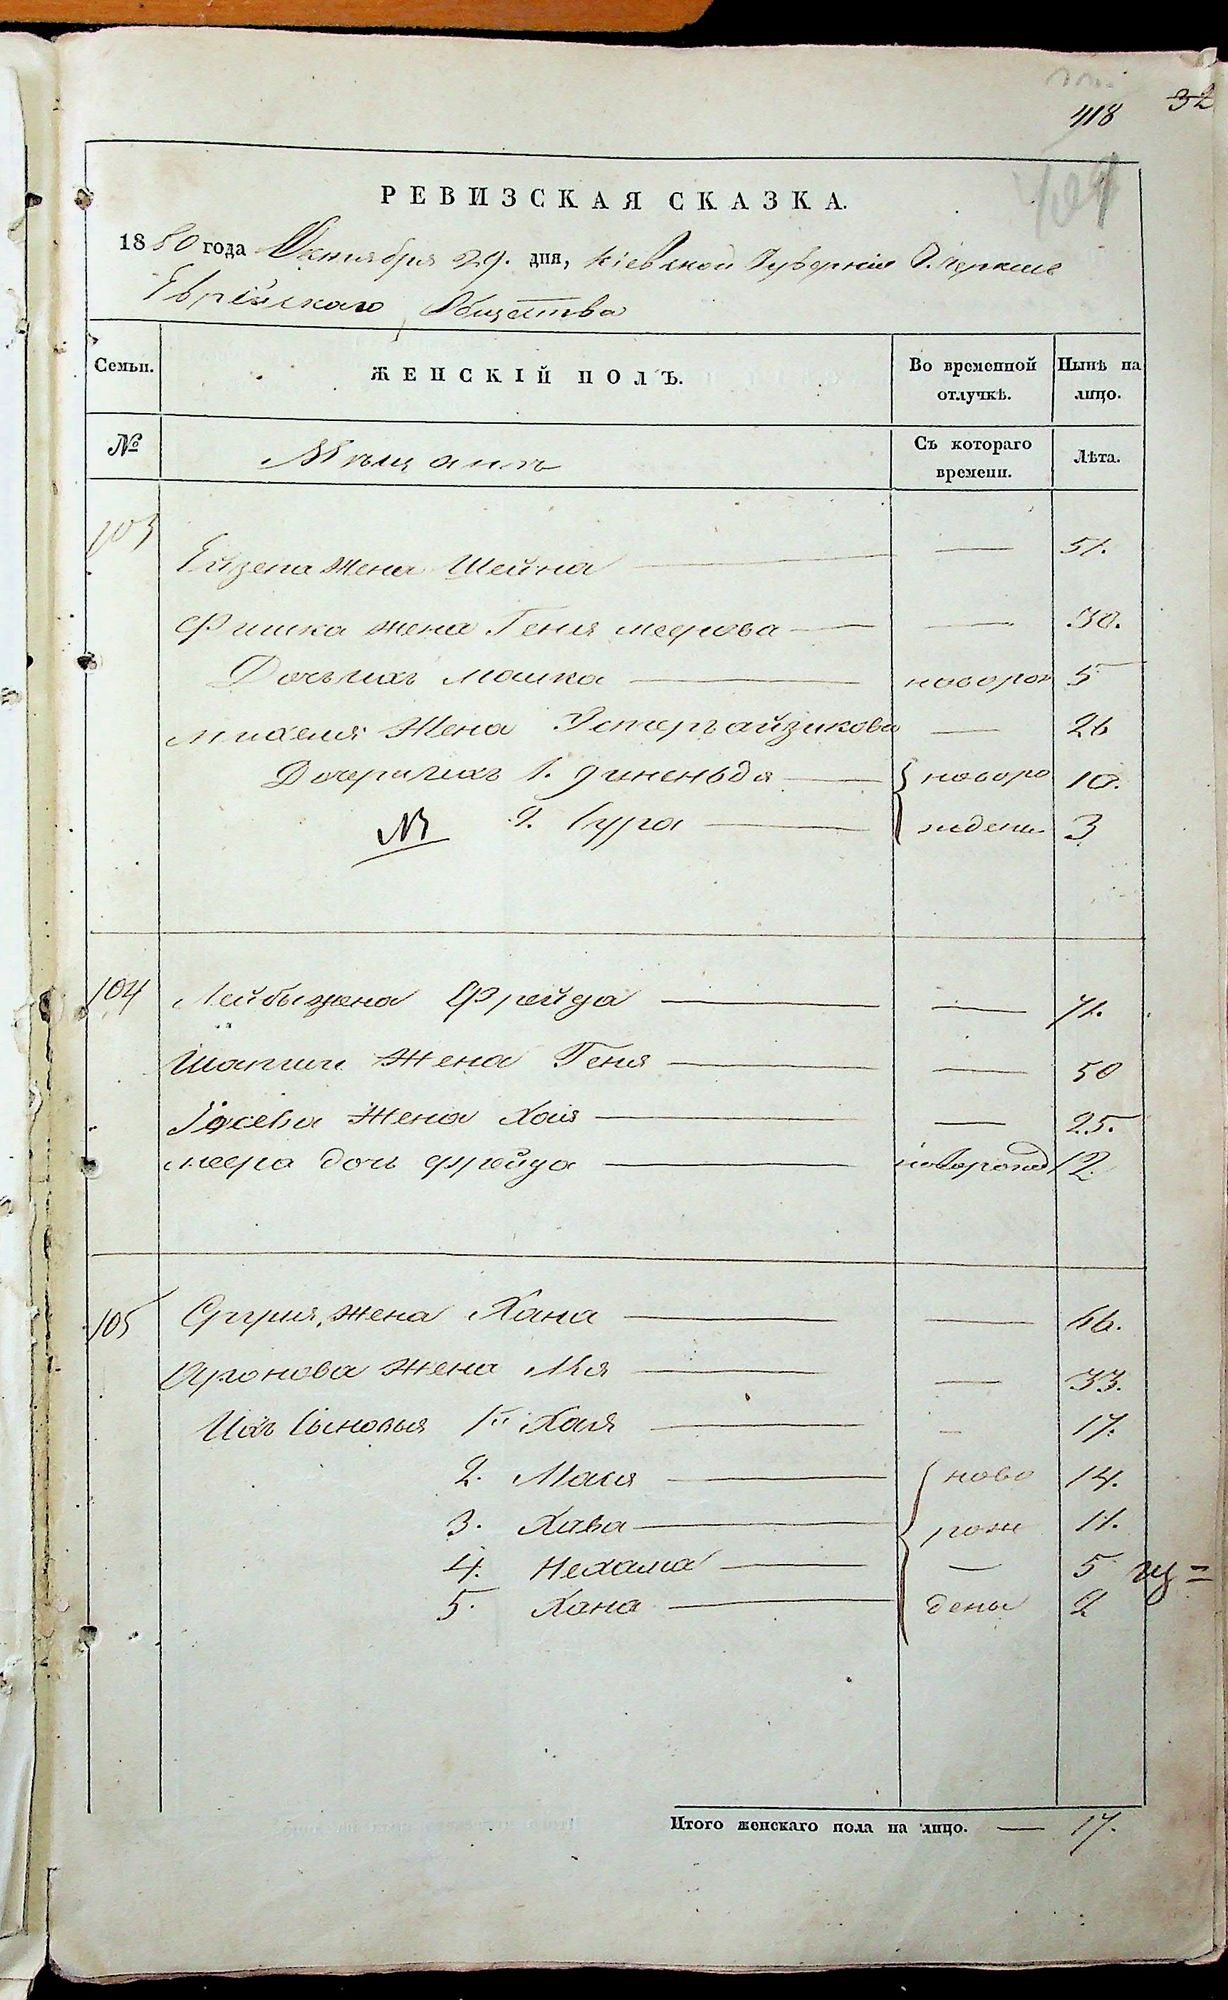 418 32
РЕВИЗСКАЯ СКАЗКА.
1850 года Октября 29. дня, Кіевской Губерніи
Еврейскаго Общества
Семьи. ЖЕНСКІЙ ПОЛЪ. Во временной отлучкѣ. Нынѣ на лицо.
№ Мѣщанъ Съ котораго времени. Лѣта.
103 жена Шейна — — 51.
Фишка жена Геня меерова — — 30.
Дочь ихъ машка — новорож 5
михеля Жена Эстеръ айзикова — 26
Дочери ихъ 1. — новоро 10.
2. Сура — ждены 3
104 Лейбы жена Фрейда — — 71.
Жена Геня — — 50
Іосева Жена Хая — — 25.
меера дочь фрейда — новорожд 12.
105 жена Хана — — 66.
Аронова жена — — 33.
Ихъ Сыновья 1й Хая — — 17.
2. — ново 14.
3. Хава — рож 11.
4. Нехама — — 5
5. Хана — дены 2
Итого женскаго пола на лицо. — 17.